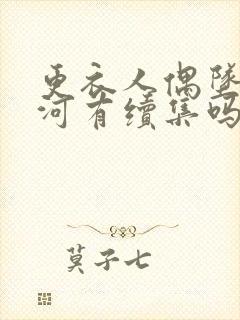 更衣人偶坠
河有续集吗
莫子七